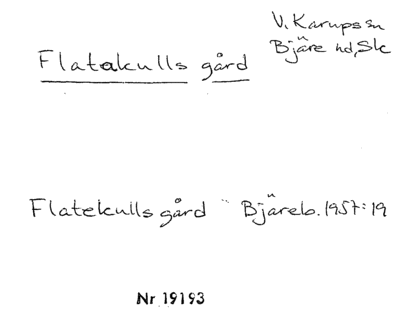 V. Karups sn
Bjäre hd, Sk
Flatakulls gård
Flatekulls gård Bjäreb. 1957:19
Nr 19193